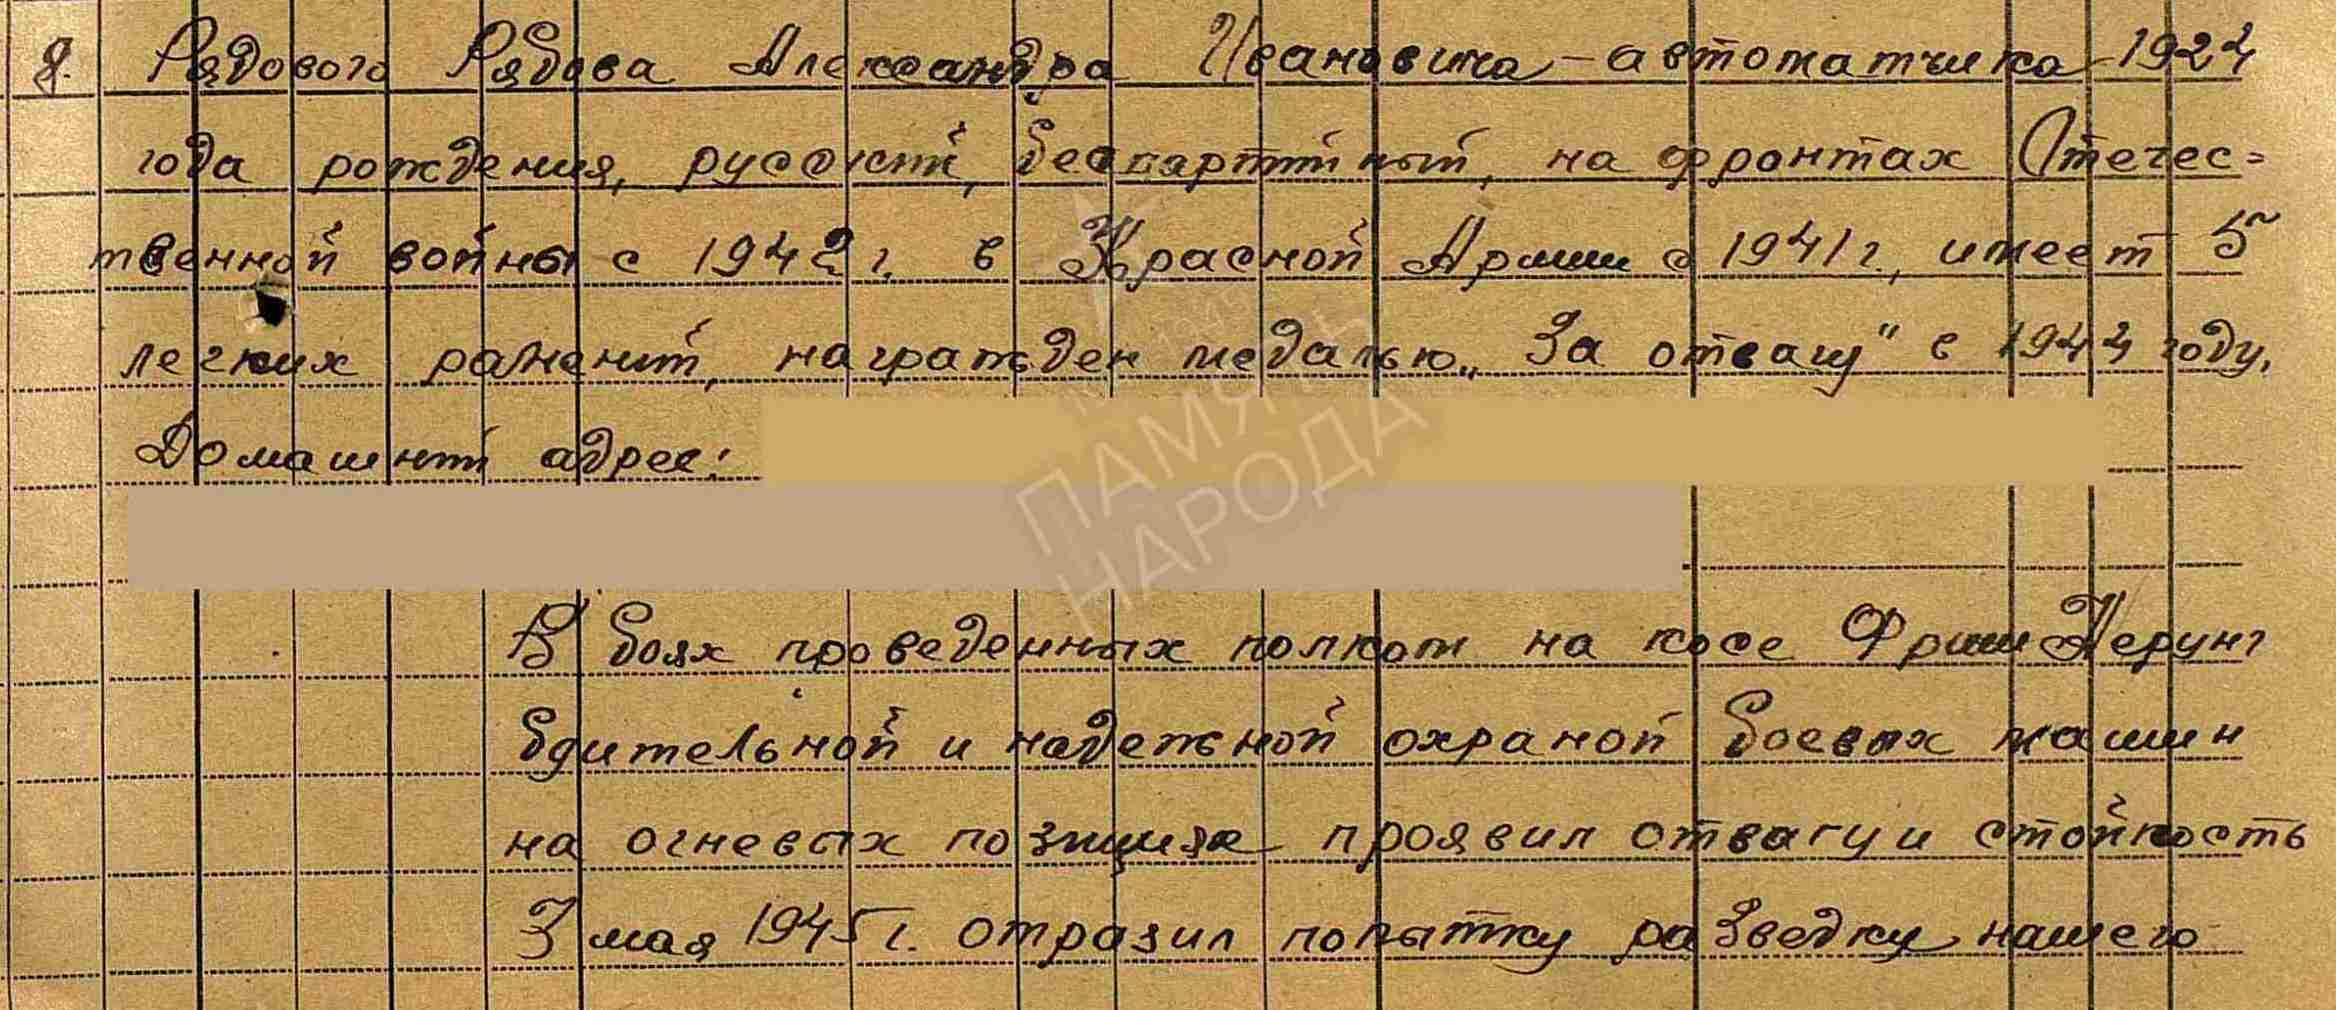 8. Рядового Рябова Александра Ивановича - автоматчика 1924
года рождения, русский, беспартийный, на фронтах Отечес=
твенной войны с 1942 г. в Красной Армии с 1941 г., имеет 5
легких ранений, награжден медалью „За отвагу" в 1944 году.
Домашний адрес:
В боях проведенных полком на косе Фриш Нерунг
бдительной и надежной охраной боевых машин
на огневых позициях проявил отвагу и стойкость
3 мая 1945 г. отразил попытку разведку нашего
ПАМЯТЬ
НАРОДА